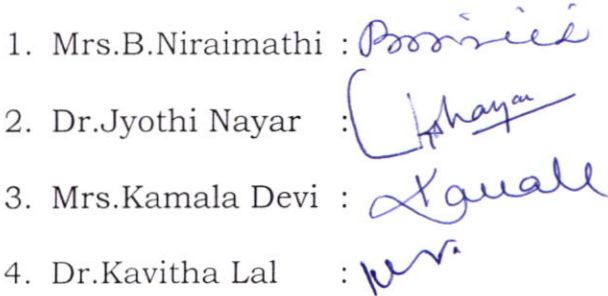 1. Mrs.B.Niraimathi :
2. Dr.Jyothi Nayar :
3. Mrs.Kamala Devi :
4. Dr.Kavitha Lal :